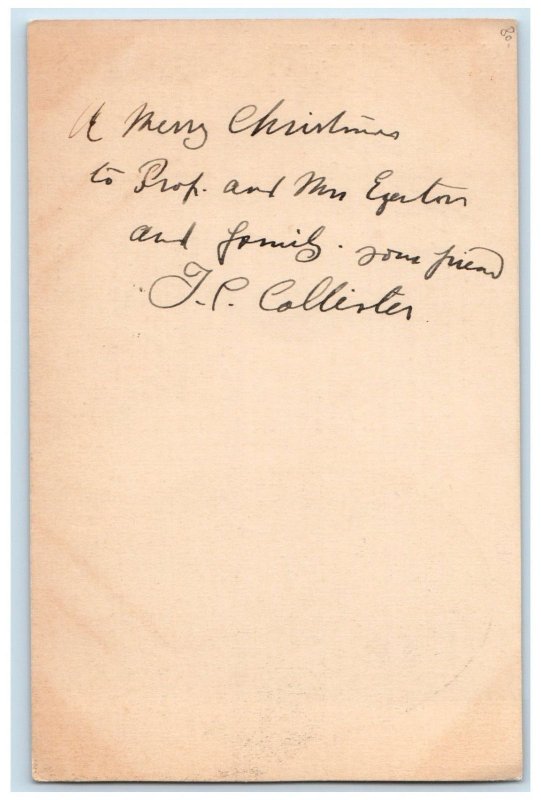 A Merry Christmas
to Prof. and Mrs Egerton
and family. your friend
T. C. Collister
80-